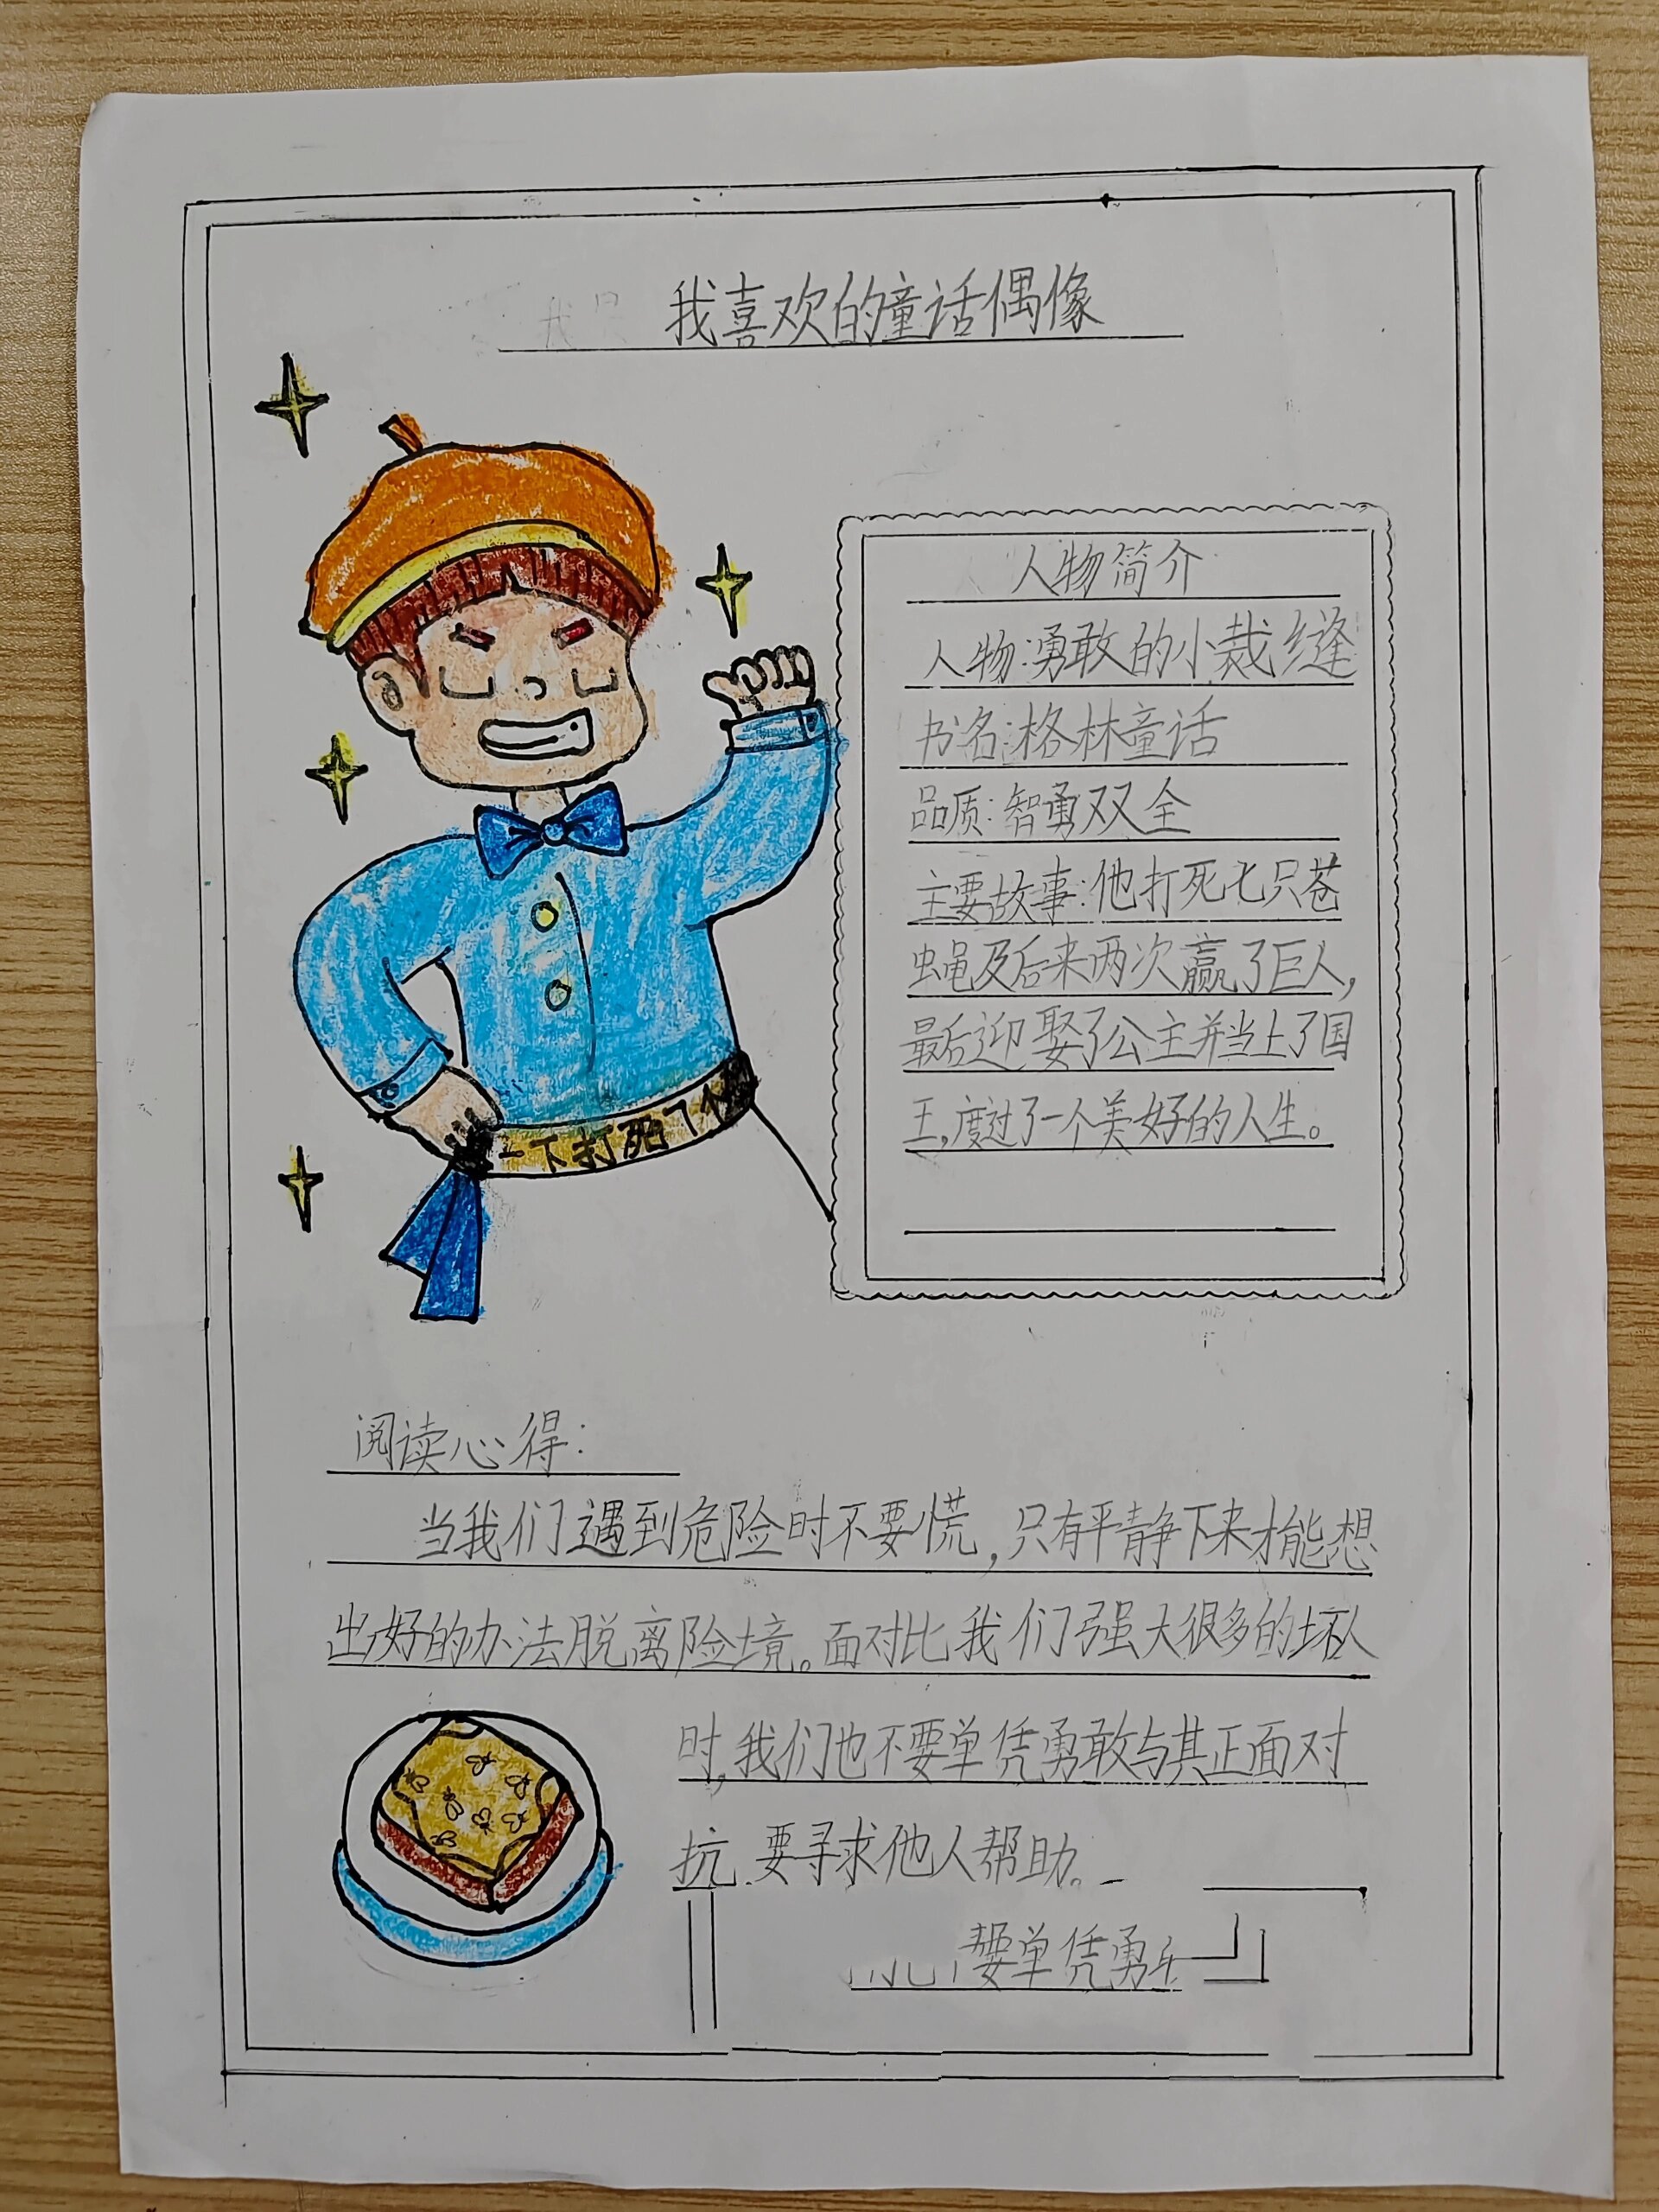 我喜欢的童话偶像
人物简介
人物:勇敢的小裁缝
书名:格林童话
品质:智勇双全
主要故事:他打死七只苍
蝇及后来两次赢了巨人,
最后迎娶了公主并当上了国
王,度过了一个美好的人生。
一下打死了个
阅读心得:
当我们遇到危险时不要慌,只有平静下来才能想
出好的办法脱离险境。面对比我们强大很多的坏人
时,我们也不要单凭勇敢与其正面对
抗.要寻求他人帮助。
要单凭勇